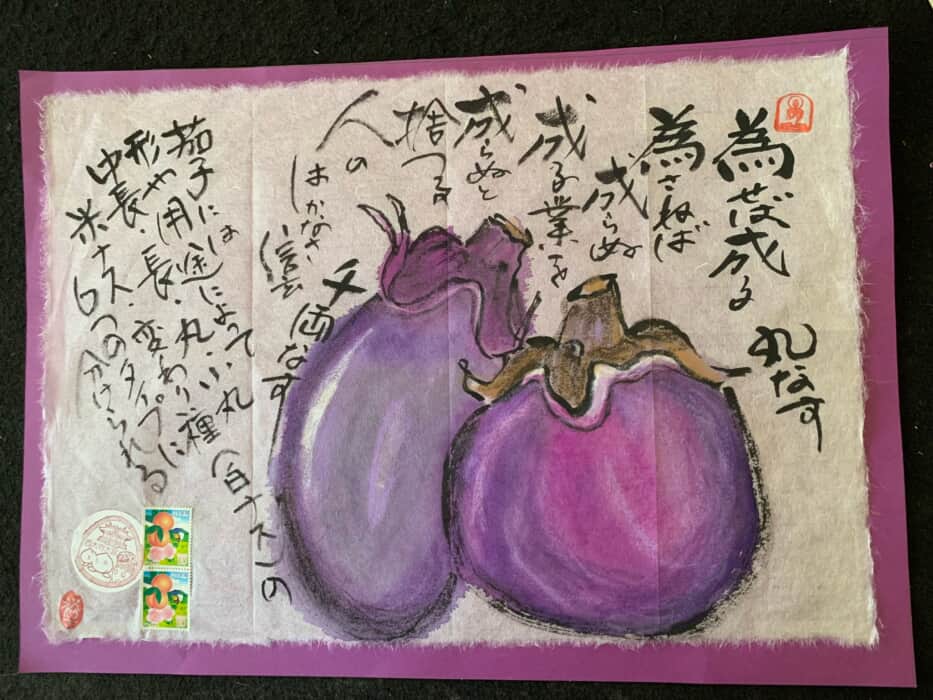 為せば成る
為さねば
成らぬ
成る業を
成らぬと
捨つる
人の
はかなさ
信玄
丸なす
千両なす
茄子には
形や用途によって
中長・長・丸・小丸
米ナス・変わり種(白ナス)の
6つのタイプに
分けられる